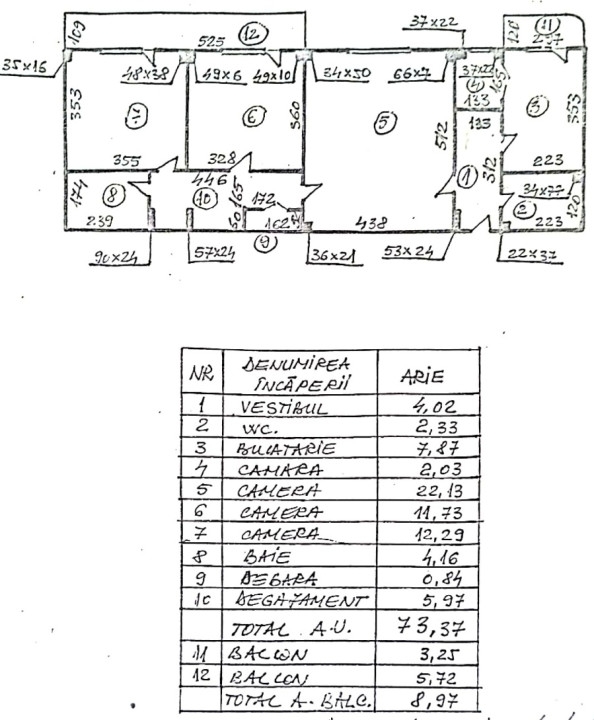 109
525
12
37×22
120
11
297
35×16
48×38
49×6
49×10
34×50
66×7
37×22
4
165
353
7
6
360
5
512
133
3
353
133
355
328
1
312
223
174
8
446
10
165
172
34×77
2
120
239
50
162
9
438
223
90×24
57×24
36×21
53×24
22×37
NR DENUMIREA ÎNCĂPERII ARIE
1 VESTIBUL 4,02
2 WC. 2,33
3 BUCATARIE 7,87
4 CAMARA 2,03
5 CAMERA 22,13
6 CAMERA 11,73
7 CAMERA 12,29
8 BAIE 4,16
9 DEBARA 0,84
10 DEGAJAMENT 5,97
TOTAL A.U. 73,37
11 BALCON 3,25
12 BALCON 5,72
TOTAL A. BALC. 8,97